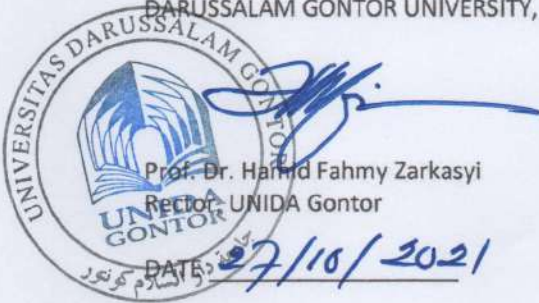 DARUSSALAM GONTOR UNIVERSITY,
UNIVERSITAS DARUSSALAM GONTOR
UNIDA
GONTOR
جامعة دار السلام كونتور
Prof. Dr. Hamid Fahmy Zarkasyi
Rector UNIDA Gontor
DATE: 27/10/2021